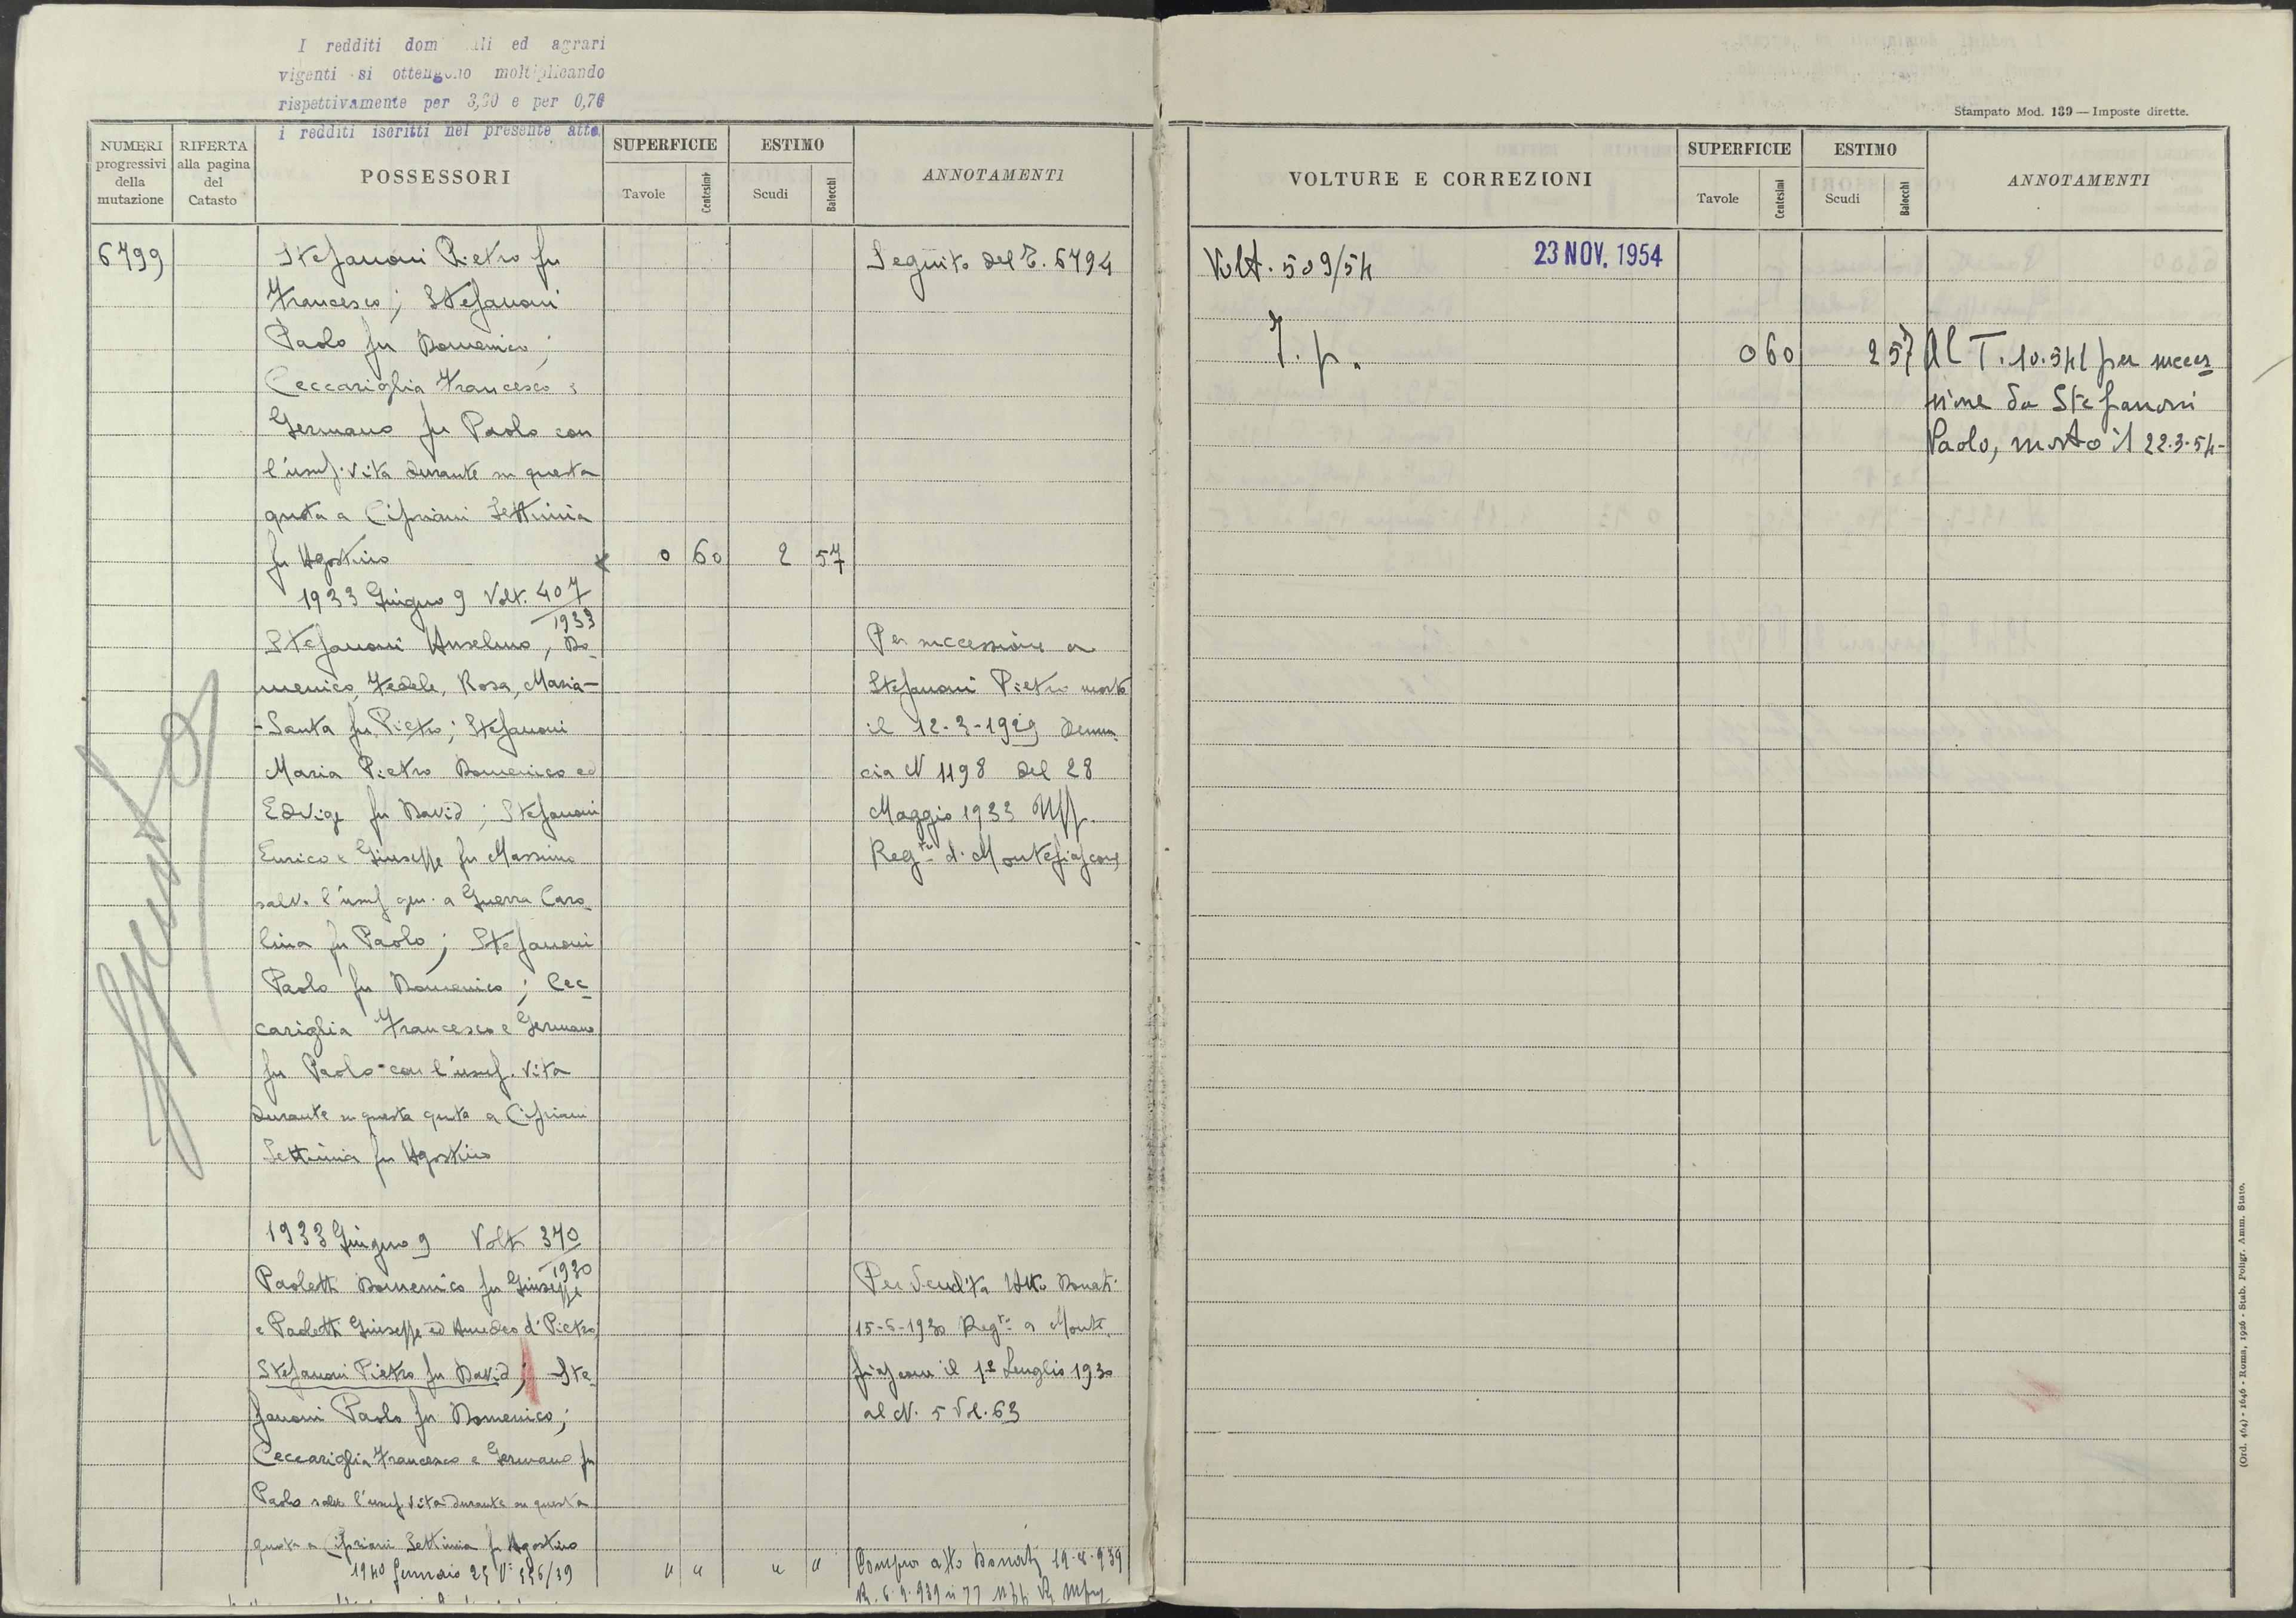 I redditi dom ali ed agrari
vigenti si ottengono moltiplicando
rispettivamente per 3,30 e per 0,70
i redditi iscritti nel presente atto
NUMERI progressivi della mutazione
RIFERTA alla pagina del Catasto
POSSESSORI
SUPERFICIE
Tavole
Centesimi
ESTIMO
Scudi
Baiocchi
ANNOTAMENTI
6799
Stefanoni Pietro fu
Francesco; Stefanoni
Paolo fu Domenico;
Ceccariglia Francesco e
Germano fu Paolo con
l'usuf. vita durante su questa
quota a Cipriani Settimia
fu Agostino
0 60 2 57
Seguito del T. 6794
1933 Giugno 9 Volt. 407
1933
Stefanoni Anselmo, Do-
menico, Fedele, Rosa, Maria-
-Santa fu Pietro; Stefanoni
Maria Pietro Domenico ed
Edvige fu David; Stefanoni
Enrico e Giuseppe fu Massimo
salv. l'usuf gen. a Guerra Caro-
lina fu Paolo; Stefanoni
Paolo fu Domenico; Cec-
cariglia Francesco e Germano
fu Paolo con l'usuf. vita
durante su questa quota a Cipriani
Settimia fu Agostino
Per successione a
Stefanoni Pietro morto
il 12-3-1929 Denun-
cia N 1198 del 28
Maggio 1933 Uff.
Reg.ro di Montefiascone
1933 Giugno 9 Volt 370
1930
Paoletti Domenico fu Giuseppe
e Paoletti Giuseppe ed Amedeo di Pietro
Stefanoni Pietro fu David; Ste-
fanoni Paolo fu Domenico;
Ceccariglia Francesco e Germano fu
Paolo salvo l'usuf. vita durante su questa
quota a Cipriani Settimia fu Agostino
Per vendita Atto Donati
15-6-1930 Reg.to a Monte
fiascone il 1º Luglio 1930
al N. 5 Vol. 63
1940 Gennaio 25 V.
" " " "
Compra atto Donati
VOLTURE E CORREZIONI
SUPERFICIE
Tavole
Centesimi
ESTIMO
Scudi
Baiocchi
ANNOTAMENTI
Stampato Mod. 139 — Imposte dirette.
Volt. 509/54
23 NOV. 1954
T. p.
0 60 2 57
Al T. 10.541 per succes
sione da Stefanoni
Paolo, morto il 22.3.54-
(Ord. 464) - 1646 - Roma, 1926 - Stab. Poligr. Amm. Stato.